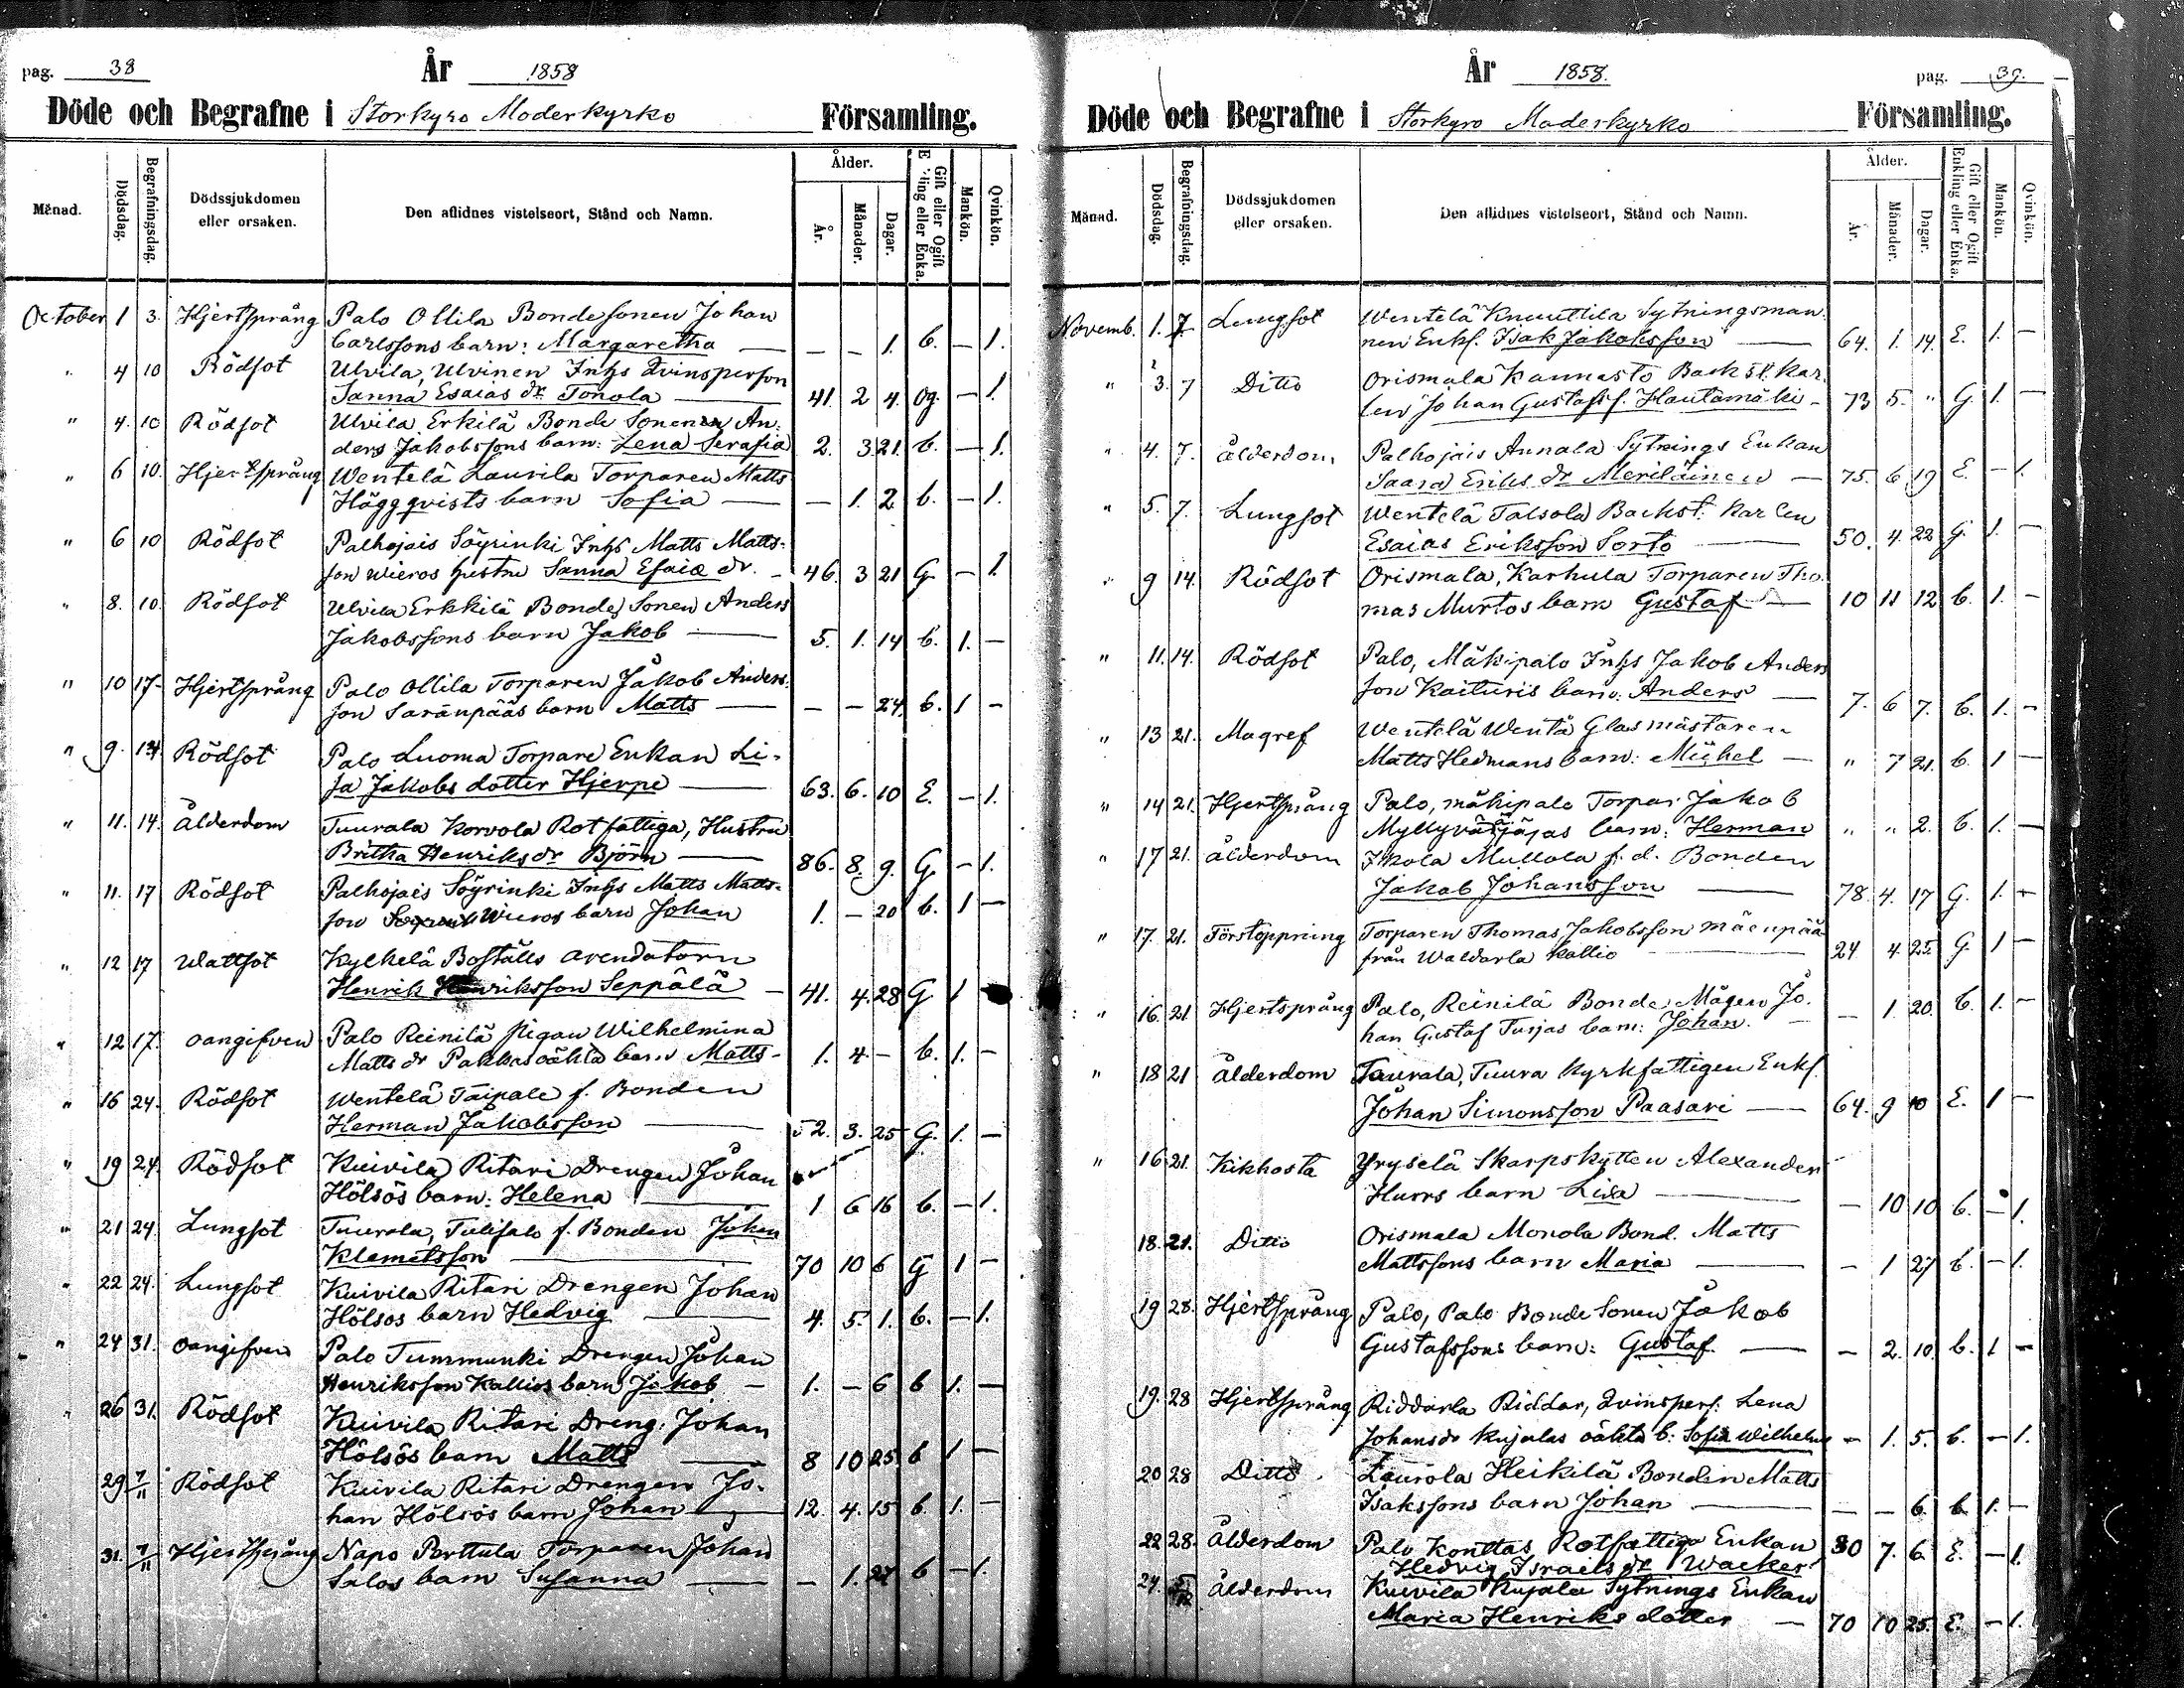 pag. 38 År 1858
Döde och Begrafne i Storkyro Moderkyrko Församling.
Månad. Dödsdag. Begrafningsdag. Dödssjukdomen eller orsaken. Den aflidnes vistelseort, Stånd och Namn. Ålder. År. Månader. Dagar. Gift eller Ogift Enkling eller Enka. Mankön. Qvinkön.
October 1 3. Hjertsprång Palo Ollila Bondesonen Johan
Carlssons barn: Margaretha — — — 1. b. — 1.
" 4 10 Rödsot Ulvila, Ulvinen Inhs Qvinsperson
Sanna Esaias dr Tonola — 41. 2 4. og. — 1.
" 4. 10 Rödsot Ulvila Erkilä Bonde Sonen An-
ders Jakobssons barn: Lena Serafia 2. 3. 21. b. — 1.
" 6 10. Hjertsprång Wentelä Laurila Torparen Matts
Häggqvists barn Sofia — — 1. 2. b. — 1.
" 6 10 Rödsot Palhojais Söyrinki Inhs Matts Matts-
son Wieros hustru Sanna Esaiæ dr. — 46. 3 21 G — 1.
" 8. 10. Rödsot Ulvila Erkkilä Bonde Sonen Anders
Jakobssons barn Jakob — 5. 1. 14 b. 1. —
" 10 17- Hjertsprång Palo Ollila Torparen Jakob Anders-
son Saranpääs barn Matts — — — 24. b. 1 —
" 9. 14. Rödsot Palo Luoma Torpare Enkan Li-
sa Jakobs dotter Hjerpe — 63. 6. 10 E. — 1.
" 11. 14. Ålderdom Tuurala Korvola Rotfattiga, Hustru
Britha Henriks dr Björn — 86. 8. 9. G — 1.
" 11. 17 Rödsot Palhojais Söyrinki Inhs Matts Matts-
son Wieros barn Johan 1. — 20 b. 1 —
" 12 17 Wattsot Kylkelä Boställs arendatorn
Henrik Henriksson Seppälä — 41. 4. 28 G 1
" 12 17. oangifven Palo Reinilä pigan Wilhelmina
Matts dr Pakkas oäkta barn Matts - 1. 4 — b. 1. —
" 16 24. Rödsot Wentelä Taipale f. Bonden
Herman Jakobsson — 52. 3. 25 G. 1. —
" 19 24. Rödsot Kuivila Ritari Drengen Johan
Hölsös barn: Helena — 1 6 16 b. — 1.
" 21 24. Lungsot Tuurala, Tulisalo f. Bonden Johan
Klemetsson — 70 10 6 G 1 —
" 22 24. Lungsot Kuivila Ritari Drengen Johan
Hölsos barn Hedvig — 4. 5. 1. b. — 1.
" 24 31. oangifven Palo Tummunki Drengen Johan
Henriksson Kallios barn Jakob — 1. — 6 b 1. —
" 26 31. Rödsot Kuivila Ritari Dreng. Johan
Hölsös barn Matts — 8 10 25 b 1 —
29 7/11 Rödsot Kuivila Ritari Drengen Jo-
han Hölsös barn Johan — 12. 4. 15 b. 1. —
31. 7/11 Hjertsprång Napo Perttula Torparen Johan
Salos barn Susanna — — 1. 27 b — 1.
År 1858. pag. 39.
Döde och Begrafne i Storkyro Moderkyrko Församling.
Månad. Dödsdag. Begrafningsdag. Dödssjukdomen eller orsaken. Den aflidnes vistelseort, Stånd och Namn. Ålder. År. Månader. Dagar. Gift eller Ogift Enkling eller Enka. Mankön. Qvinkön.
Novemb. 1. 7 Lungsot Wentelä Knuuttila Sytningsman-
nen Enkl. Isak Jakobsson — 64. 1. 14. E. 1. —
" 3. 7 Ditto Orismala Kannasto Backst. kar-
len Johan Gustafs. Hautamäki - 73 5. " G 1. —
" 4. 7. Ålderdom Palhojais Annala Sytnings Enkan
Saara Eriks dr Meriläinen — 75. 6 19 E. — 1.
" 5. 7. Lungsot Wentelä Talsola Backst. karlen
Esaias Eriksson Sorto — 50. 4. 22 G. 1. —
" 9 14. Rödsot Orismala, Karhula Torparen Tho-
mas Murtos barn Gustaf — 10 11 12 b. 1. —
" 11. 14. Rödsot Palo, Mäkipalo Inhs Jakob Anders
son Kaituris barn: Anders — 7. 6 7. b. 1. —
" 13 21. Magref Wentelä Wentä Glasmästaren
Matts Hedmans barn: Michel — " 7 21. b. 1 —
" 14 21. Hjertsprång Palo, mäkipalo Torpar. Jakob
barn: Herman " " 2. b. 1. —
" 17 21. Ålderdom Ikola Mullola f. d. Bonden
Jakob Johansson — 78. 4. 17 G. 1. —
" 17. 21. Förstoppning Torparen Thomas Jakobsson Mäenpää
från Waldarla Kallio — 24 4. 25. G. 1 —
" 16. 21 Hjertsprång Palo, Reinilä Bonde Mågen Jo-
han Gustaf Turjas barn: Johan. — — 1. 20. b. 1. —
" 18 21 Ålderdom Tuurala, Tuura kyrkfattigen Enkl.
Johan Simonsson Paasari — 64. 9 10 E. 1 —
" 16 21. Kikhosta Yryselä Skarpskytten Alexander
Hurrs barn Lisa — — 10 10 b. — 1.
18. 21. Ditto Orismala Monola Bond. Matts
Mattssons barn Maria — — 1 27 b. — 1.
19 28. Hjertsprång Palo, Palo Bonde Sonen Jakob
Gustafssons barn: Gustaf. — — 2. 10. b. 1 —
19. 28 Hjertsprång Riddarla Riddar, Qvinspers. Lena
Johansdr Kujalas oäkta b: Sofia Wilhelm — 1. 5. b. — 1.
20 28 Ditto Laurola Heikilä Bonden Matts
Isakssons barn Johan — — — 6. b. 1. —
22 28. Ålderdom Palo Konttas Rotfattiga Enkan 80 7. 6. E. — 1.
Hedvig Israels dr Wacker
24. Ålderdom Kuivila Kujala Sytnings Enkan
Maria Henriks dotter — 70 10 25. E. — 1.